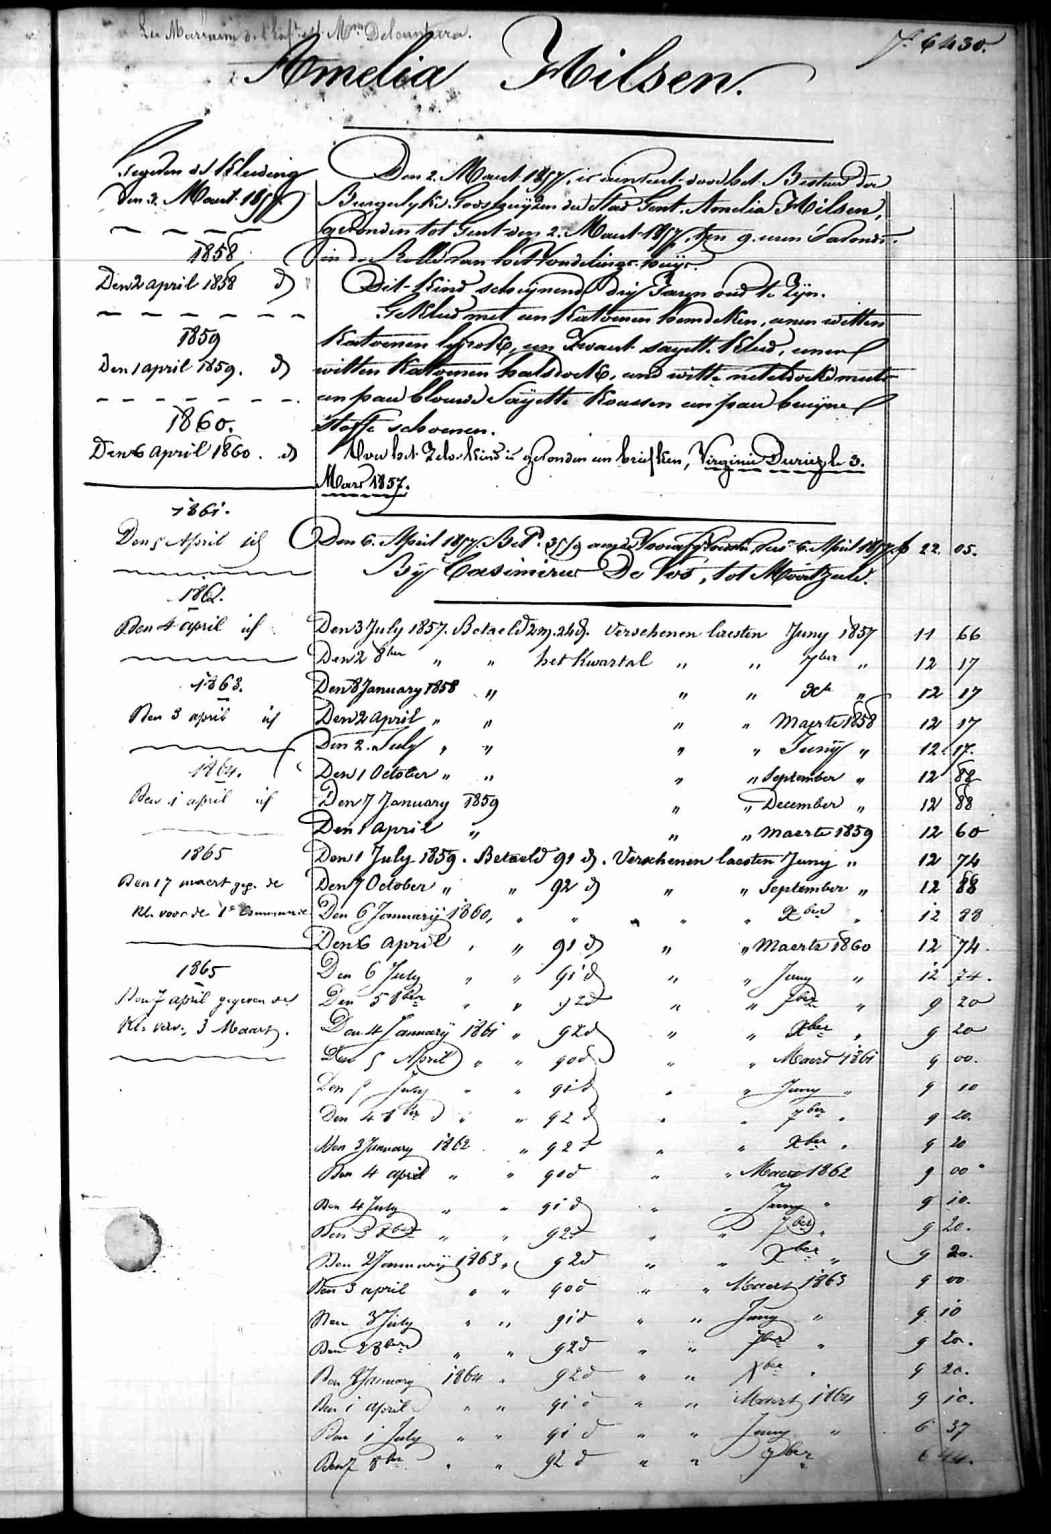 f.° 6430.
Amelia Hilsen.
Gegeven de Kleeding
den 2. Maert 1857
1858
Den 2 april 1858 d
1859
Den 1 april 1859. d
1860.
Den 6 april 1860. d
1861.
Den 5 April id
1862.
Den 4 april id
1863.
Den 3 april id
1864.
Den 1 april id
1865
Den 17 maert geg. de
Kl. voor de 1e Communie
1865
Den 7 april gegeven de
Kl. verv. 3 Maart.
Den 2. Maert 1857, is aenveerd door het Bestuer der
Burgerlyke Godshuyzen der Stad Gent, Amelia Hilsen,
gevonden tot Gent den 2. Maert 1857, ten 9. uren 's avonds.
in de Rolle van het Vondelinge-huys.
Dit Kind schynende dry Jaren oud te Zyn.
Gekleed met een Katoenen hemdeken, eenen witten
Katoenen lyfrok, een Zwart sayette Kleed, eenen
witten Katoenen halsdoek, eene witte neteldoeke muts
een paer blauwe Sayette Koussen een paer bruyne
Stoffe schoenen.
Voor het Zelve Kind is gevonden een briefken, Virginie Duriez le 3.
Mars 1857.
Den 6. April 1857. Bet. 35/9 aengd. 6. April 1857. f 22 05.
By Casimirus De Vos, tot Moortzeele.
Den 3 July 1857. Betaeld 2m. 24d. Verschenen laesten Juny 1857 11 66
Den 2 8ber " " het Kwartal " " 7ber " 12 17
Den 8 January 1858 " " " Xber " 12 17
Den 2 April " " " " Maerte 1858 12 17
Den 2. July " " " " Juny " 12 17.
Den 1 October " " " " September " 12 88
Den 7 January 1859 " " December " 12 88
Den 1 April " " " Maerte 1859 12 60
Den 1 July 1859. Betaeld 91 d. Verschenen laesten Juny " 12 74
Den 7 October " " 92 d " " September " 12 88
Den 6 January 1860, " " " " Xber " 12 88
Den 6 April " " 91 d " " Maerte 1860 12 74
Den 6 July " " 91 d " " Juny " 12 74.
Den 5 8ber " " 92 d " " 7ber " 9 20
Den 4 January 1861 " 92 d " " Xber " 9 20
Den 5 April " " 90 d " " Maert 1861 9 00.
Den 5 July " " 91 d " " Juny " 9 10
Den 4 8ber " " 92 d " " 7ber " 9 20.
Den 3 January 1862 " 92 d " " Xber " 9 20
Den 4 april " " 90 d " " Maert 1862 9 00
Den 4 July " " 91 d " " Juny " 9 10.
Den 3 8ber " " 92 d " " 7ber " 9 20.
Den 2 January 1863, " 92 d " " Xber " 9 20.
Den 3 april " " 90 d " " Maert 1863 9 00
Den 3 July " " 91 d " " Juny " 9 10
Den 2 8ber " " 92 d " " 7ber " 9 20.
Den 2 January 1864 " 92 d " " Xber " 9 20.
Den 1 april " " 91 d " " Maert 1864 9 10.
Den 1 July " " 91 d " " Juny " 6 37
Den 7 8ber " " 92 d " " 7ber " 6 44.